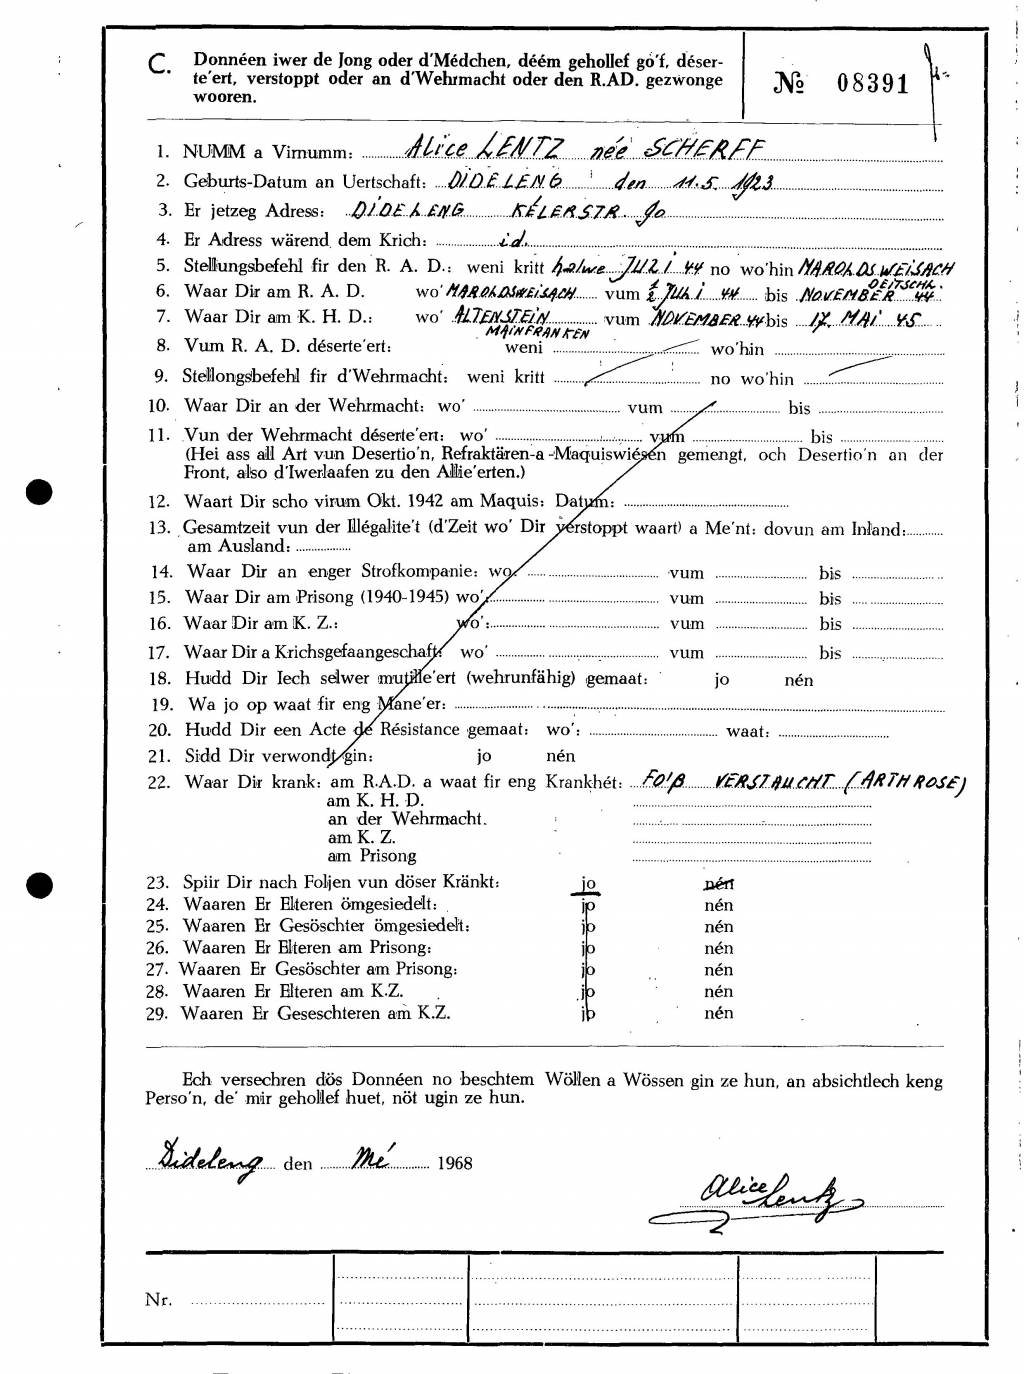 C. Donnéen iwer de Jong oder d'Médchen, déém gehollef go'f, déser-
te'ert, verstoppt oder an d'Wehrmacht oder den R.AD. gezwonge
wooren.
№ 08391
1. NUMM a Virnumm: Alice LENTZ née SCHERFF
2. Geburts-Datum an Uertschaft: DIDELENG den 11.5. 1923
3. Er jetzeg Adress: DIDELENG KÉLERSTR. 90
4. Er Adress wärend dem Krich: id.
5. Stellungsbefehl fir den R. A. D.: weni kritt halwe JULI 44 no wo'hin MAROLDSWEISACH
DEITSCHL.
6. Waar Dir am R. A. D. wo' MAROLDSWEISACH vum ½ JULI 44 bis NOVEMBER 44
7. Waar Dir am K. H. D.: wo' ALTENSTEIN vum NOVEMBER 44 bis 17. MAI 45
MAINFRANKEN
8. Vum R. A. D. déserte'ert: weni wo'hin
9. Stellongsbefehl fir d'Wehrmacht: weni kritt no wo'hin
10. Waar Dir an der Wehrmacht: wo' vum bis
11. Vun der Wehrmacht déserte'ert: wo' vum bis
(Hei ass all Art vun Desertio'n, Refraktären-a-Maquiswiésen gemengt, och Desertio'n an der
Front, also d'Iwerlaafen zu den Allie'erten.)
12. Waart Dir scho virum Okt. 1942 am Maquis: Datum:
13. Gesamtzeit vun der Illégalite't (d'Zeit wo' Dir verstoppt waart) a Me'nt: dovun am Inland:
am Ausland:
14. Waar Dir an enger Strofkompanie: wo' vum bis
15. Waar Dir am Prisong (1940-1945) wo': vum bis
16. Waar Dir am K. Z.: wo': vum bis
17. Waar Dir a Krichsgefaangeschaft: wo' vum bis
18. Hudd Dir Iech selwer mutille'ert (wehrunfähig) gemaat: jo nén
19. Wa jo op waat fir eng Mane'er:
20. Hudd Dir een Acte de Résistance gemaat: wo': waat:
21. Sidd Dir verwondt gin: jo nén
22. Waar Dir krank: am R.A.D. a waat fir eng Krankhét: FO'ß VERSTAUCHT (ARTHROSE)
am K. H. D.
an der Wehrmacht.
am K. Z.
am Prisong
23. Spiir Dir nach Foljen vun döser Kränkt: jo nén
24. Waaren Er Elteren ömgesiedelt: jo nén
25. Waaren Er Gesöschter ömgesiedelt: jo nén
26. Waaren Er Elteren am Prisong: jo nén
27. Waaren Er Gesöschter am Prisong: jo nén
28. Waaren Er Elteren am K.Z. jo nén
29. Waaren Er Geseschteren am K.Z. jo nén
Ech versechren dös Donnéen no beschtem Wöllen a Wössen gin ze hun, an absichtlech keng
Perso'n, de' mir gehollef huet, nöt ugin ze hun.
Dideleng den Mé 1968
Alice Lentz
Nr.